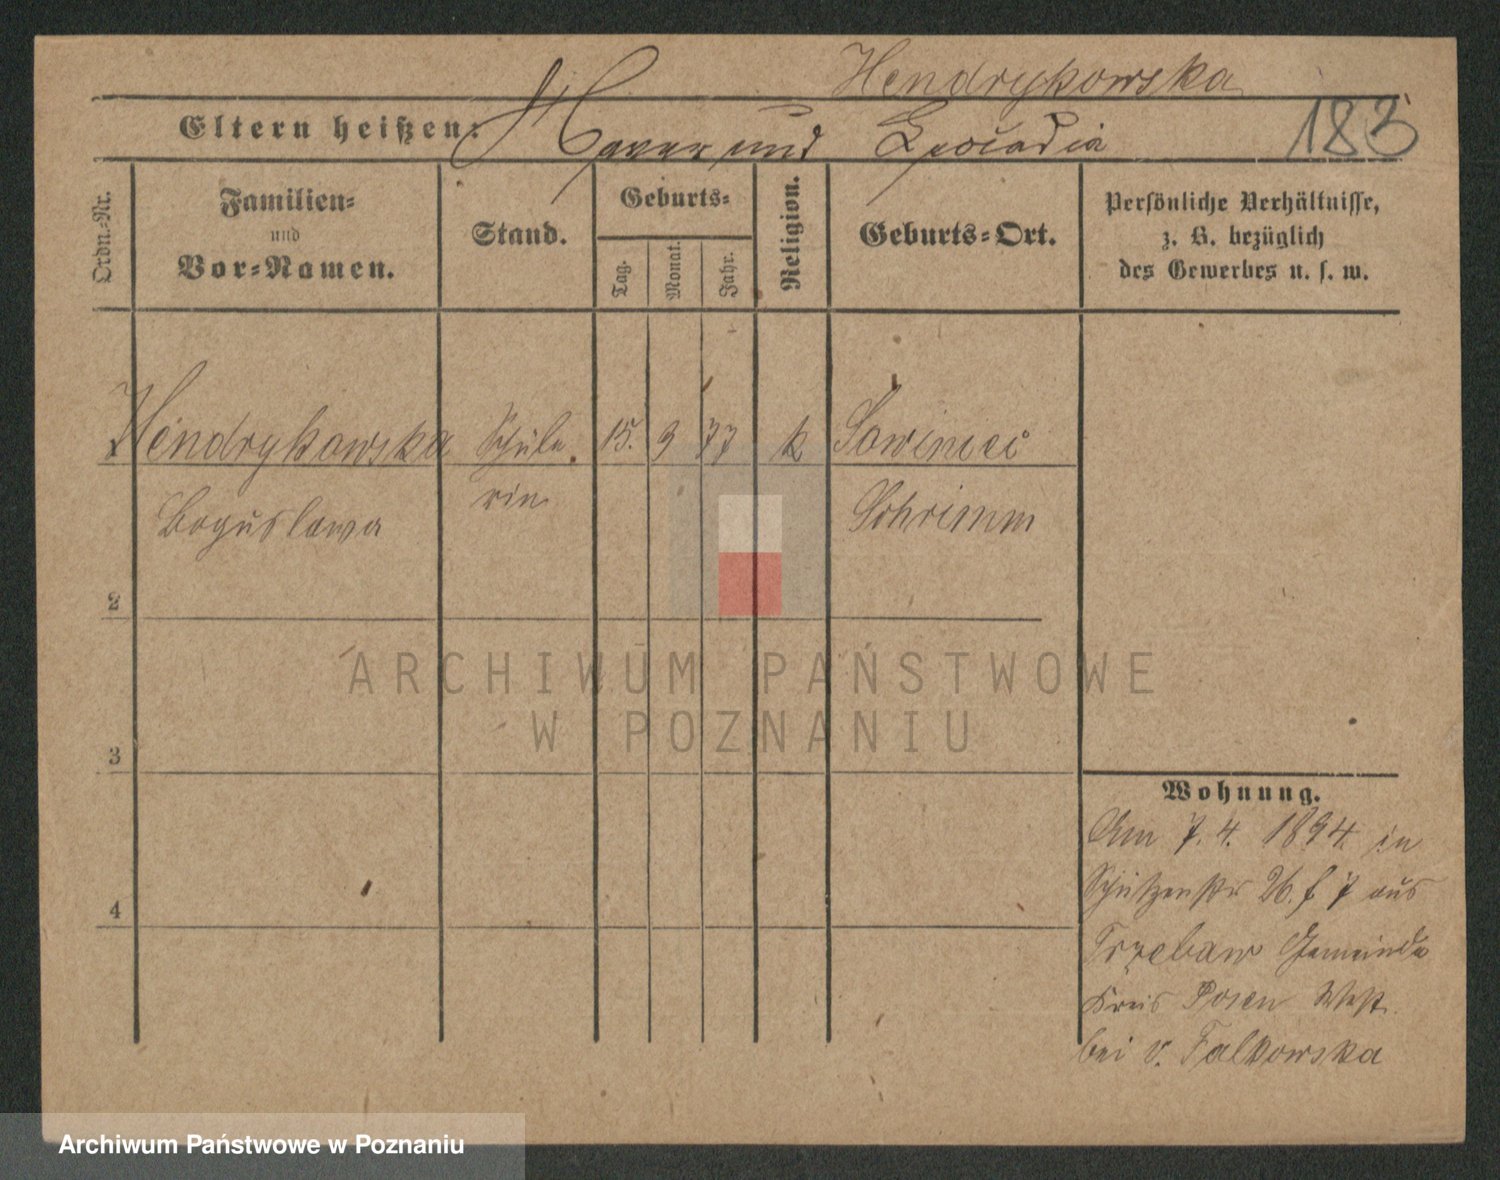 Hendrykowska
Eltern heißen: Xaver und Leocadia
183
Ordn.-Nr.
Familien-
und
Vor-Namen.
Stand.
Geburts-
Tag.
Monat.
Jahr.
Religion.
Geburts-Ort.
Persönliche Verhältnisse,
z. B. bezüglich
des Gewerbes u. s. w.
1 Hendrykowska Schüle- 15. 9 77 k Sowiniec
Boguslawa rin Schrimm
2
3
4
Wohnung.
Am 7. 4. 1894 in
Schützenstr 26. f 7 aus
Trzebaw Gemeinde
Kreis Posen West.
bei v. Falkowska
ARCHIWUM PAŃSTWOWE
W POZNANIU
Archiwum Państwowe w Poznaniu